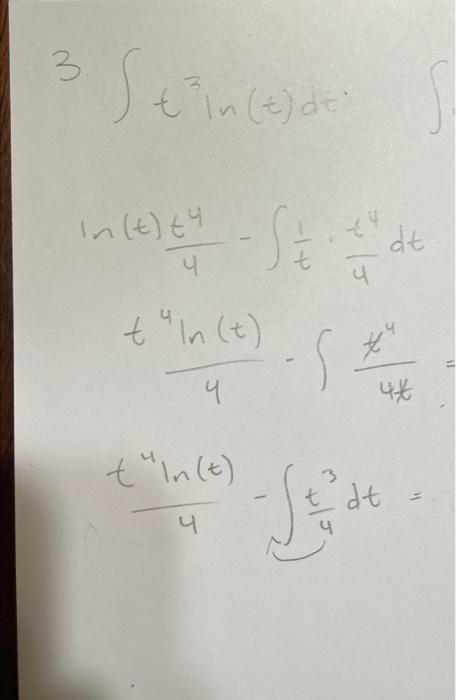 3. ∫ t³ ln(t) dt ∫
ln(t) t⁴/4 - ∫ 1/t · t⁴/4 dt
t⁴ ln(t)/4 - ∫ t⁴/4t =
t⁴ ln(t)/4 - ∫ t³/4 dt =